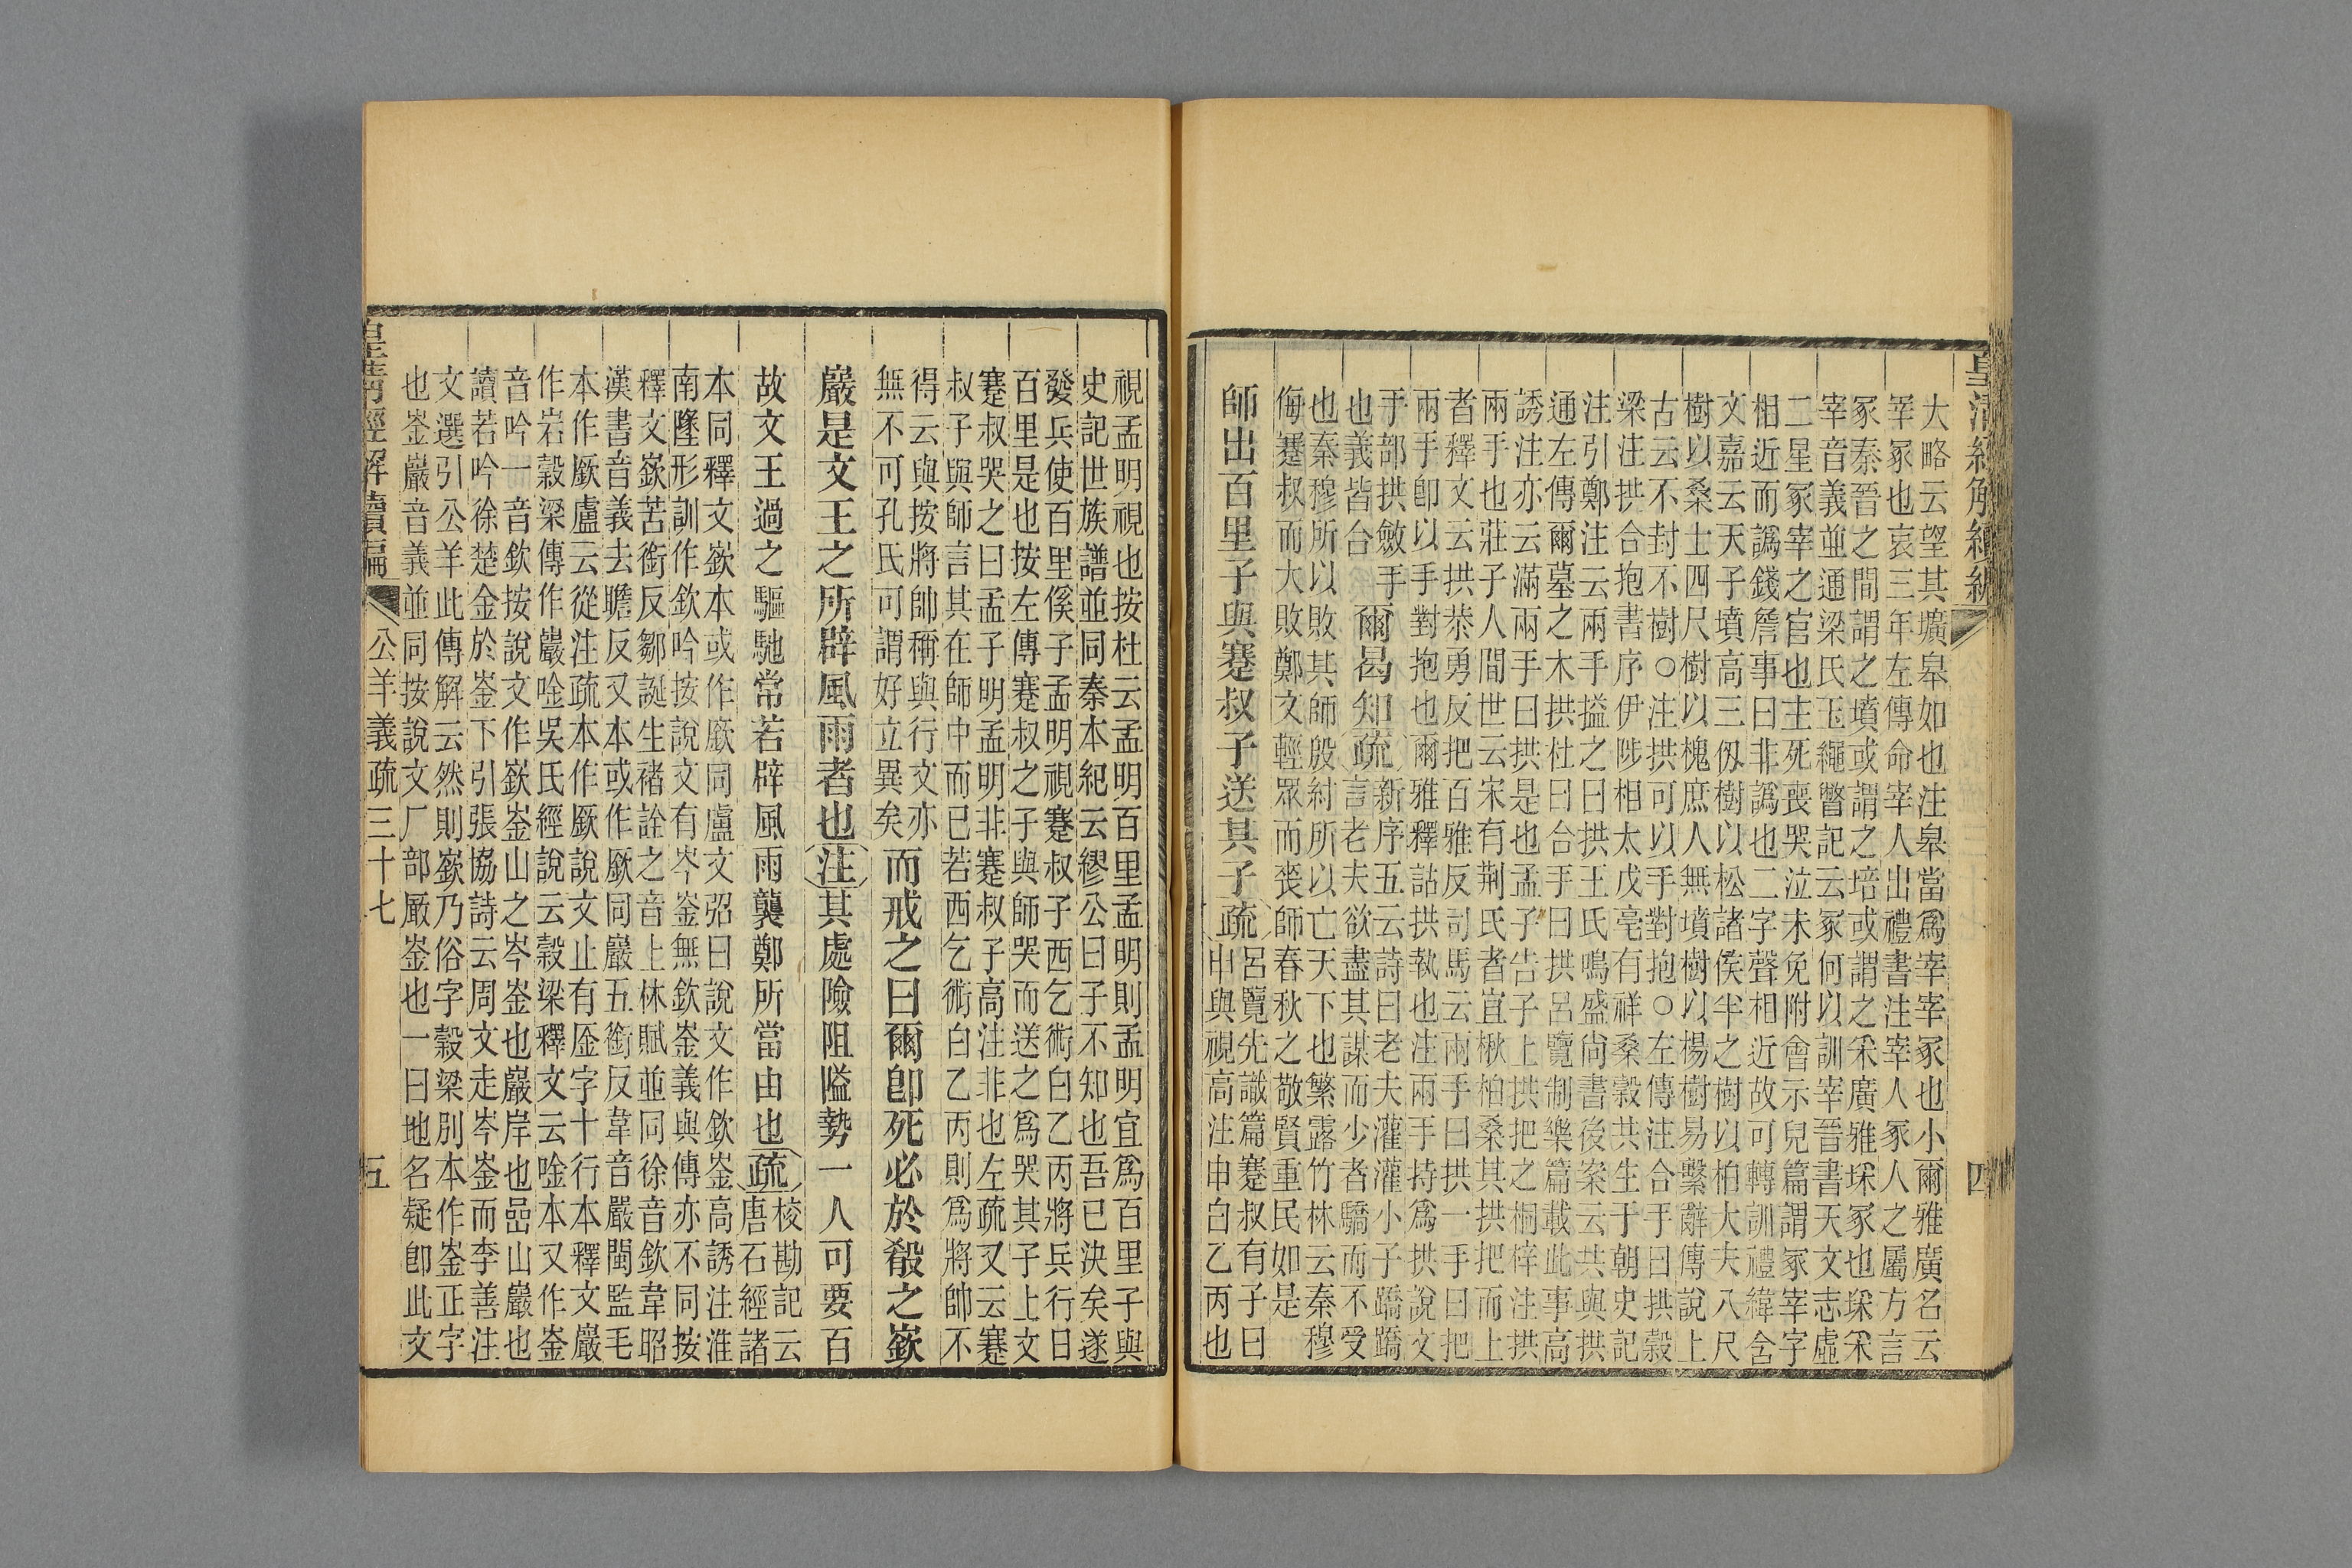 皇清經解續編
四
大略云望其壙皋如也注皋當爲宰宰冢也小爾雅廣名云
宰冢也哀三年左傳命宰人出禮書注宰人冢人之屬方言
冢秦晉之間謂之墳或謂之培或謂之埰廣雅埰冢也埰采
宰音義並通梁氏玉繩瞥記云冢何以訓宰晉書天文志虛
二星冢宰之官也主死喪哭泣未免附會示兒篇謂冢宰字
相近而譌錢詹事曰非譌也二字聲相近故可轉訓禮緯含
文嘉云天子墳高三仭樹以松諸侯半之樹以柏大夫八尺
樹以桑士四尺樹以槐庶人無墳樹以楊樹易繫辭傳說上
古云不封不樹○注拱可以手對抱○左傳注合手曰拱穀
梁注拱合抱書序伊陟相太戊亳有祥桑穀共生于朝史記
注引鄭注云兩手搤之曰拱王氏鳴盛尙書後案云共與拱
通左傳爾墓之木拱杜曰合手曰拱呂覽制樂篇載此事高
誘注亦云滿兩手曰拱是也孟子告子上拱把之桐梓注拱
兩手也莊子人間世云宋有荆氏者宜楸柏桑其拱把而上
者釋文云拱恭勇反把百雅反司馬云兩手曰拱一手曰把
兩手卽以手對抱也爾雅釋詁拱執也注兩手持爲拱說文
手部拱斂手爾曷知疏新序五云詩曰老夫灌灌小子蹻蹻
也義皆合言老夫欲盡其謀而少者驕而不受
也秦穆所以敗其師殷紂所以亡天下也繁露竹林云秦穆
侮蹇叔而大敗鄭文輕眾而喪師春秋之敬賢重民如是
師出百里子與蹇叔子送其子疏呂覽先識篇蹇叔有子曰
申與視高注申白乙丙也
視孟明視也按杜云孟明百里孟明則孟明宜爲百里子與
史記世族譜並同秦本紀云繆公曰子不知也吾已決矣遂
發兵使百里傒子孟明視蹇叔子西乞術白乙丙將兵行日
百里是也按左傳蹇叔之子與師哭而送之爲哭其子上文
蹇叔哭之曰孟子明孟明非蹇叔子高注非也左疏又云蹇
叔子與師言其在師中而已若西乞術白乙丙則爲將帥不
得云與按將帥稱與行文亦
無不可孔氏可謂好立異矣而戒之曰爾卽死必於殽之嶔
巖是文王之所辟風雨者也注其處險阻隘勢一人可要百
故文王過之驅馳常若辟風雨襲鄭所當由也疏挍勘記云
唐石經諸
本同釋文嶔本或作厰同盧文弨曰說文作欽崟高誘注淮
南墬形訓作欽吟按說文有岑崟無欽崟義與傳亦不同按
釋文嶔苦銜反鄒誕生褚詮之音上林賦並同徐音欽韋昭
漢書音義去瞻反又本或作厰同巖五銜反韋音嚴閩監毛
本作厰盧云從注疏本作厰說文止有厱字十行本釋文巖
作岩穀梁傳作巖唫吳氏經說云穀梁釋文云唫本又作崟
音吟一音欽按說文作嶔崟山之岑崟也巖岸也嵒山巖也
讀若吟徐楚金於崟下引張協詩云周文走岑崟而李善注
文選引公羊此傳解云然則嶔乃俗字穀梁別本作崟正字
也崟巖音義並同按說文厂部厰崟也一曰地名疑卽此文
皇清經解續編
公羊義疏三十七
五